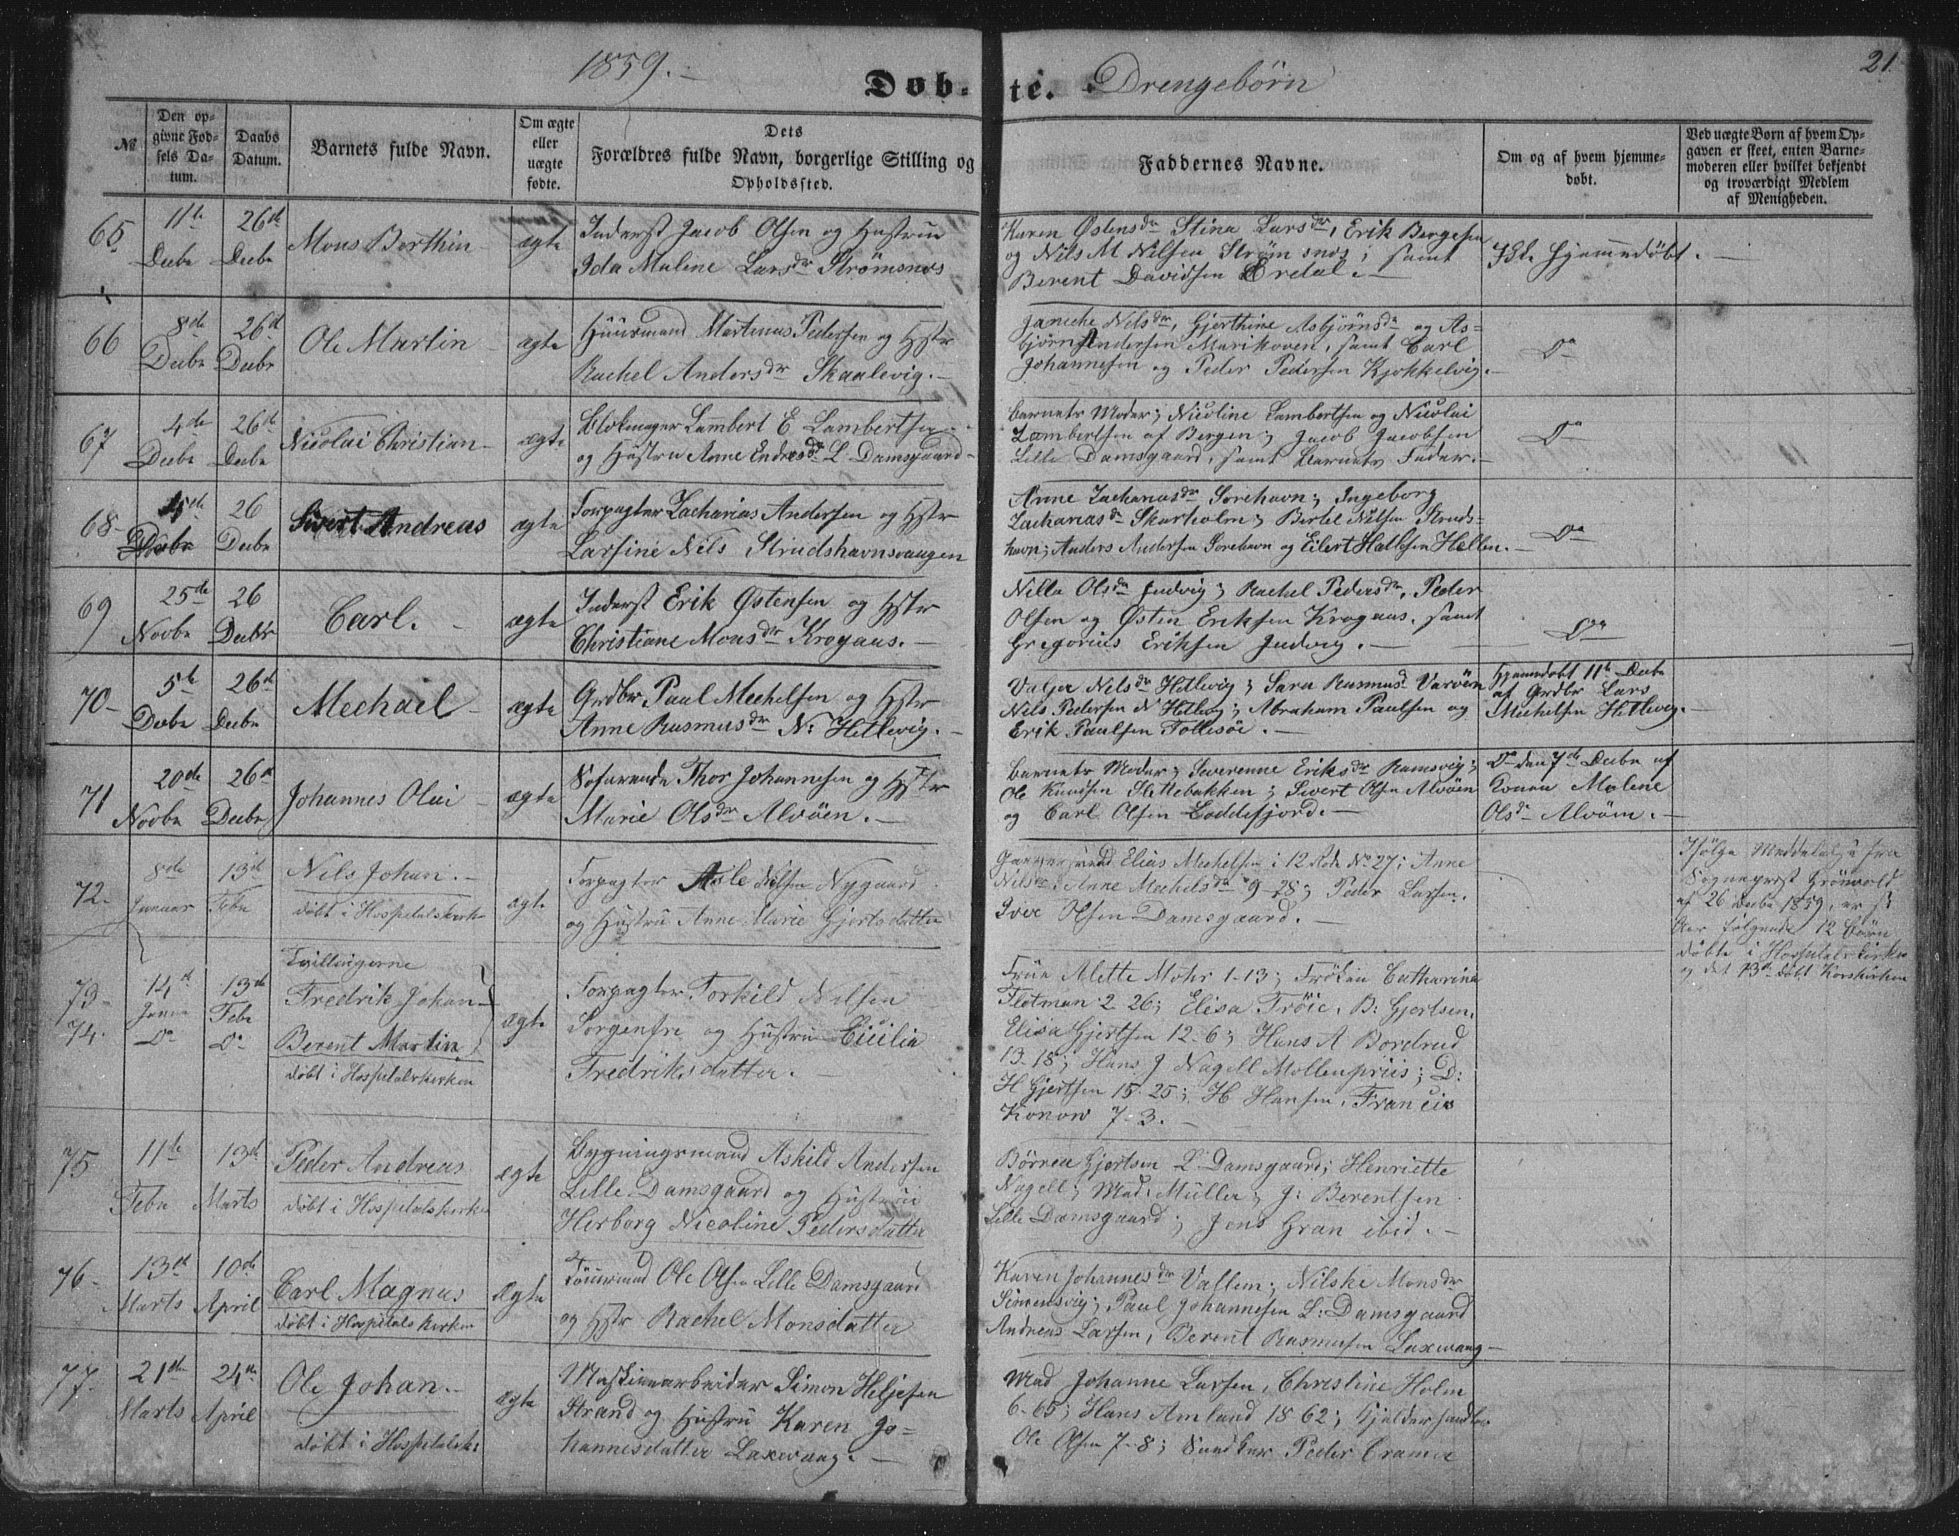 1859.-
Døb-te. Drengebørn
21.
№
Den opgivne Fødsels Datum.
Daabs Datum.
Barnets fulde Navn.
Om ægte eller uægte fødte.
Dets
Forældres fulde Navn, borgerlige Stilling og
Opholdssted.
Faddernes Navne.
Om og af hvem hjemmedøbt.
Ved uægte Børn af hvem Opgaven er skeet, enten Barnemoderen eller hvilket bekjendt og troværdigt Medlem af Menigheden.
65. 11te Decbr 26de Decbr Mons Berthin ægte
Inderst Jacob Olsen og Hustrue
Ida Malene Larsdr Strømsnes
Karen Østensdr Stina Larsdr, Erik Bergesen
og Nils M Nilsen Strømsnes; samt
Berent Davidsen Eredal.-
Ikke hjemmedøbt.-
66 8de Decbr 26d Decbr Ole Martin - ægte
Huusmand Martinus Pedersen og Hstr
Rachel Andersdr Skaalevig.-
Janeche Nilsdr, Gjerthine Asbjørnsdr og As=
bjørn Andersen Marikoven, samt Carl
Johannesen og Peder Pedersen Kjøkkelvig.-
Do
67 4de Decbr 26de Decbr Nicolai Christian - ægte
Blokmager Lambert E. Lambertsen
og Hustru Anne Endresdr L. Damsgaard -
Barnets Moder; Nicoline Lambertsen og Nicolai
Lambertsen af Bergen; Jacob Jacobsen
Lille Damsgaard, samt Barnets Fader.-
Do
68- 26 Decbr Sivert Andreas ægte
Forpagter Zacharias Andersen og Hstr
Larsine Nils Strudshavnsvaagen
Anne Zachariasdr Sorehavn; Ingeborg
Zachariasdr Skarholm; Bertel Nilsen Struds=
havn; Anders Andersen Sorehavn og Eilert Hatlesen Hællen.-
Do
69 25de Novbr 26 Decbr Carl. - ægte
Inderst Erik Østensen og Hstr
Christiane Monsdr Krogaas.-
Nille Olsdr Judvig; Rachel Pedersdr, Peder
Olsen og Østen Eriksen Krogaas, samt
Gregorius Eriksen Judvig.-
Do
70- 5te Decbr 26de Decbr Mechael - ægte
Grdbr Paul Mechelsen og Hstr
Anne Rasmusdr N: Hetlevig.-
Valger Nilsdr Hetlevig; Sara Rasmusd Varøen
Nils Pedersen N Hetlevig; Abraham Paulsen og
Erik Paulsen Follesøe.-
Hjemmdøbt 11te Decbr
af Grdbr Lars
Mechelsen Hetlevig.-
71 20de Novbr 26de Decbr Johannes Olai - ægte
Søfarende Thor Johannesen og Hstr
Marie Olsdr Alvøen.-
Barnets Moder; Severenne Eriksdr Ramsvig;
Ole Knudsen Slettebakken; Sivert Olsen Alvøen
og Carl Olsen Loddefjord.-
Do den 7de Decbr af
Konen Malene
Olsd Alvøen.-
72. 8de Januar 13d Febr Nils Johan.- ægte
døbt i Hospitalskirke
Forpagter Asle Nilsen Nygaard
og Hustru Anne Marie Gjertsdatter
Elias Mechelsen i 12 Rode No 27; Anne
Nilsdr; Anne Mechelsdr 9-28; Peder Larsen.
Iver Olsen Damsgaard.-
Ifølge Meddelelse fra
Sogneprest Grönvold
af 26 Decbr 1859, er
følgende 12 Børn
døbte i Hospitalskirken
og det 13de døbt Korskirken
73- 74- 14d Janr Do 13de Febr Do
Tvillingerne
Fredrik Johan -
Berent Martin ægte
døbt i Hospitalskirken
Forpagter Torkild Nilsen
Sorgenfre og Hustru Cicilia
Fredriksdatter.-
Frue Alette Mohr 1-13; Frøken Catharina
Flotman 2 26; Elisa Trøie, B: Gjertsen.
Elisa Gjertsen 12-6; Hans A Bordrud
13-18; Hans J Nagell Møllenpriis; D:
H Gjertsen 15-25; H Hansen, Francis
Konow 7-3.-
75 11te Febr 13d Marts Peder Andreas ægte
døbt i Hospitalskirke
Bygningsmand Askild Andersen
Lille Damsgaard og Hustrue
Herborg Nicoline Pedersdatter
Børnea Gjertsen L Damsgaard; Henriette
Nagell; Mad: Müller; J: Berentsen
Lille Damsgaard; Jens Gran ibid.-
76- 13d Marts 10de April Carl Magnus ægte
døbt i Hospitalskirken
Ole Olsen Lille Damsgaard
og Hstr Rachel Monsdatter
Karen Johannesdr Vallem; Nilske Monsdr
Simensvig; Paul Johannesen L: Damsgaard
Andreas Larsen, Berent Rasmusen Laxevaag -
77- 21de Marts 24de April Ole Johan.- ægte
døbt i Hospitalski
Maskinearbeider Simon Heljesen
Strand og Hustru Karen Jo=
hannesdatter Laxevaag.-
Mad Johanne Larsen, Christine Holm
6-65; Hans Amlund 18 62; Kjelderhandler
Ole Olsen 7-8; Peder Cramer